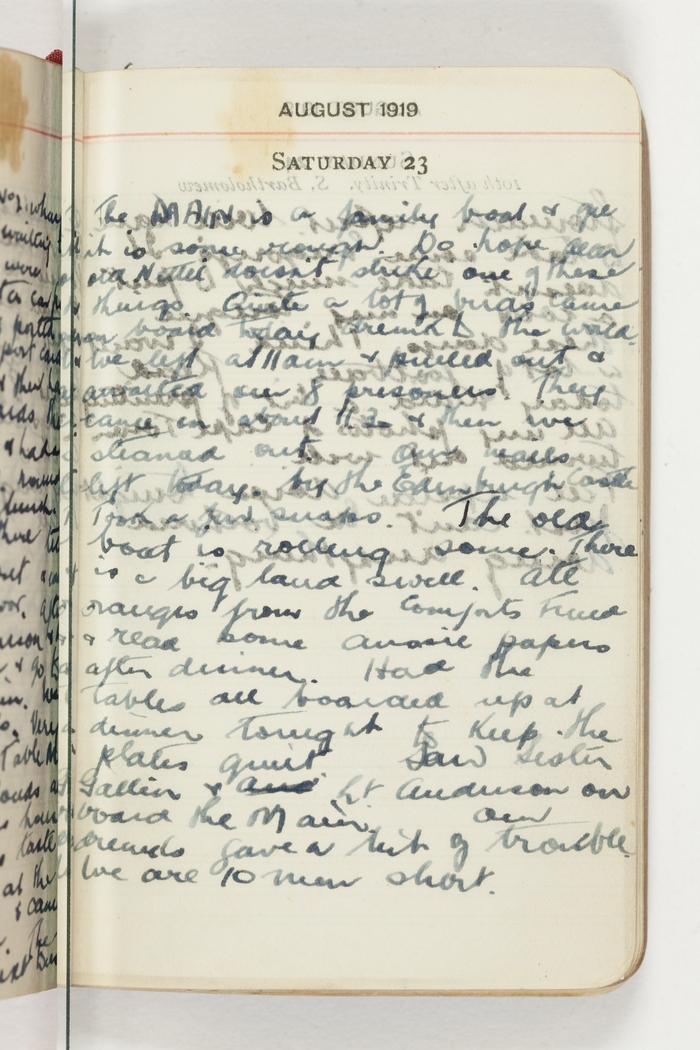 AUGUST 1919
SATURDAY 23
The MAIN is a family boat & gee
it is some rough. Do hope dear
old Nettie doesn't strike one of these
things. Quite a lot of birds came
on board today, around the world.
We left at 11am & pulled out &
awaited our 8 prisoners. They
came in about 11.30 & then we
steamed out. Our mails
left today. by the Edinburgh Castle
Took a few snaps. The old
boat is rolling some. There
is a big land swell. Ate
oranges from the Comforts Fund
& read some aussie papers
after dinner. Had the
tables all boarded up at
dinner tonight to keep the
plates quiet Saw Sister
& Lt Anderson on
board the Main. Our
gave a bit of trouble.
We are 10 men short.